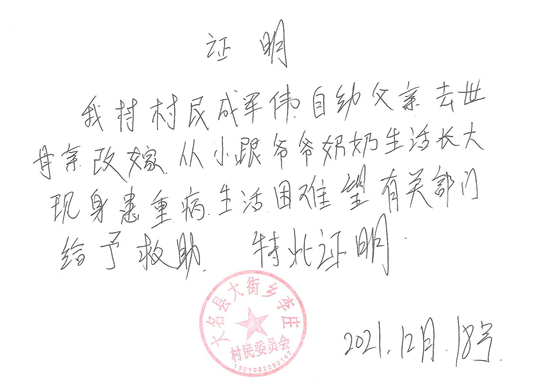 证明
我村村民成军伟自幼父亲去世
母亲改嫁.从小跟爷爷奶奶生活长大
现身患重病.生活困难望有关部门
给予救助. 特此证明.
大名县大街乡李庄
村民委员会
2021.12月.18号.